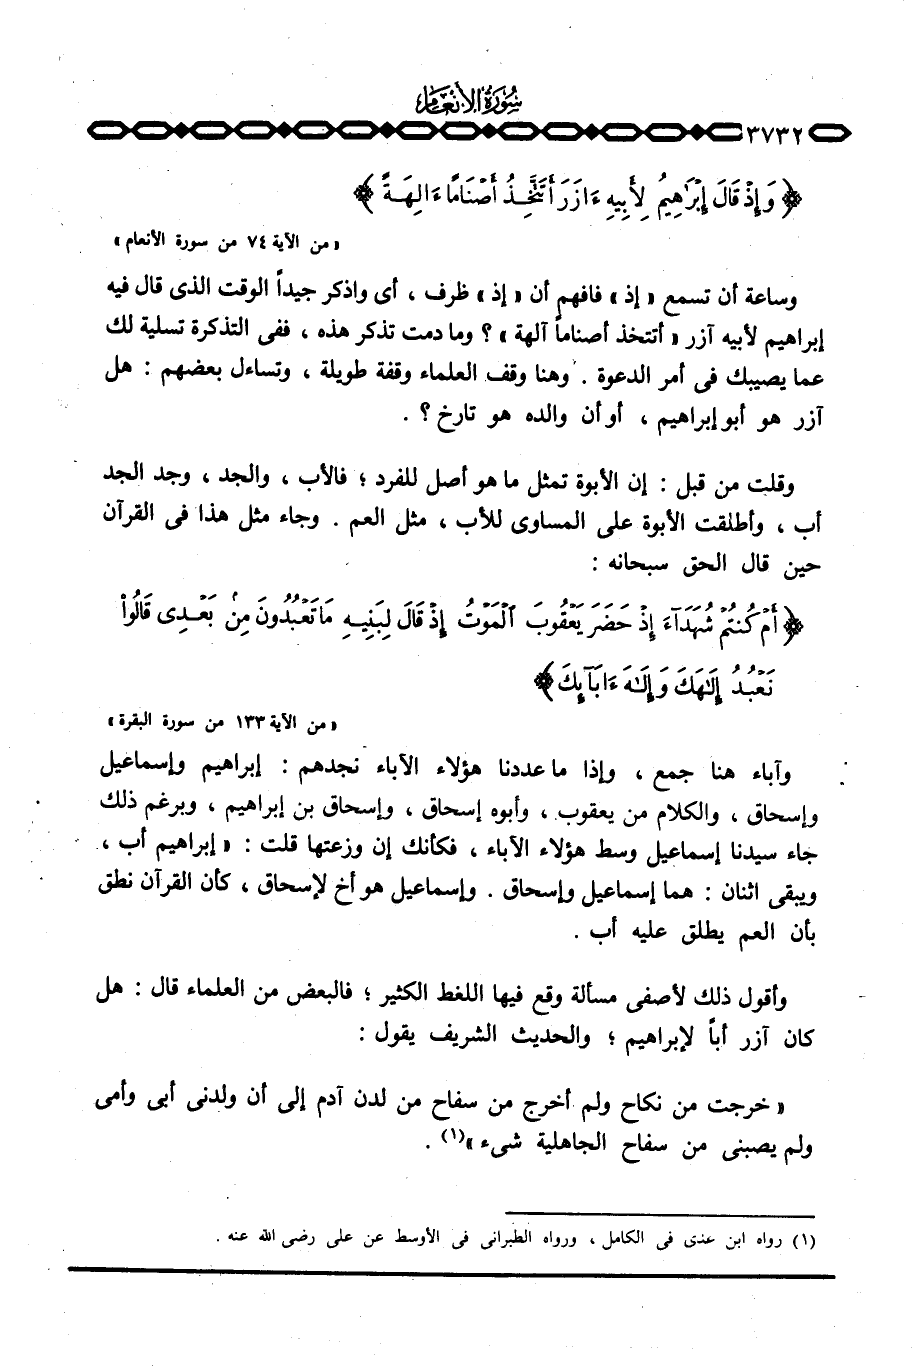 سورة الأنعام
٣٧٣٢
﴿ وَإِذْ قَالَ إِبْرَٰهِيمُ لِأَبِيهِ ءَازَرَ أَتَتَّخِذُ أَصْنَامًا ءَالِهَةً ﴾
« من الآية ٧٤ من سورة الأنعام »
وساعة أن تسمع « إذ » فافهم أن « إذ » ظرف ، أى واذكر جيداً الوقت الذى قال فيه
إبراهيم لأبيه آزر « أتتخذ أصناماً آلهة » ؟ وما دمت تذكر هذه ، ففى التذكرة تسلية لك
عما يصيبك فى أمر الدعوة . وهنا وقف العلماء وقفة طويلة ، وتساءل بعضهم : هل
آزر هو أبو إبراهيم ، أو أن والده هو تارخ ؟ .
وقلت من قبل : إن الأبوة تمثل ما هو أصل للفرد ؛ فالأب ، والجد ، وجد الجد
أب ، وأطلقت الأبوة على المساوى للأب ، مثل العم . وجاء مثل هذا فى القرآن
حين قال الحق سبحانه :
﴿ أَمْ كُنتُمْ شُهَدَآءَ إِذْ حَضَرَ يَعْقُوبَ ٱلْمَوْتُ إِذْ قَالَ لِبَنِيهِ مَا تَعْبُدُونَ مِنۢ بَعْدِى قَالُوا۟
نَعْبُدُ إِلَٰهَكَ وَإِلَٰهَ ءَابَآئِكَ ﴾
« من الآية ١٣٣ من سورة البقرة »
وآباء هنا جمع ، وإذا ما عددنا هؤلاء الآباء نجدهم : إبراهيم وإسماعيل
وإسحاق ، والكلام من يعقوب ، وأبوه إسحاق ، وإسحاق بن إبراهيم ، وبرغم ذلك
جاء سيدنا إسماعيل وسط هؤلاء الآباء ، فكأنك إن وزعتها قلت : « إبراهيم أب ،
ويبقى اثنان : هما إسماعيل وإسحاق . وإسماعيل هو أخ لإسحاق ، كأن القرآن نطق
بأن العم يطلق عليه أب .
وأقول ذلك لأصفى مسألة وقع فيها اللغط الكثير ؛ فالبعض من العلماء قال : هل
كان آزر أباً لإبراهيم ؛ والحديث الشريف يقول :
« خرجت من نكاح ولم أخرج من سفاح من لدن آدم إلى أن ولدنى أبى وأمى
ولم يصبنى من سفاح الجاهلية شىء »(١) .
(١) رواه ابن عدى فى الكامل ، ورواه الطبرانى فى الأوسط عن على رضى الله عنه .